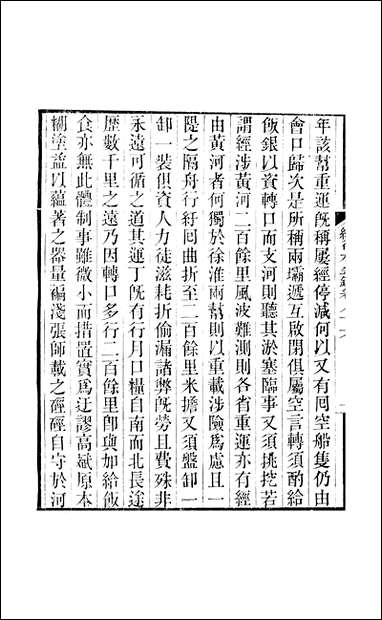 年該幫重運旣稱屢經停減何以又有囘空船隻仍由
會口歸次是所稱兩壩遞互啟閉俱屬空言轉須酌給
飯銀以資轉口而支河則聽其淤塞臨事又須挑挖若
謂經涉黃河二百餘里風波難測則各省重運亦有經
由黃河者何獨於徐淮兩幫則以重載涉險爲慮且一
隄之隔舟行紆囘曲折至二百餘里米擔又須盤卸一
卸一裝俱資人力徒滋耗折偷漏諸弊旣勞且費殊非
永遠可循之道其運丁旣有行月口糧自南而北長途
歷數千里之遠乃因轉口多行二百餘里卽與加給飯
食亦無此體制事雖微小而措置實爲迂謬高斌原本
糊塗益以蘊著之器量褊淺張師載之硜硜自守於河
續行水金鑑卷